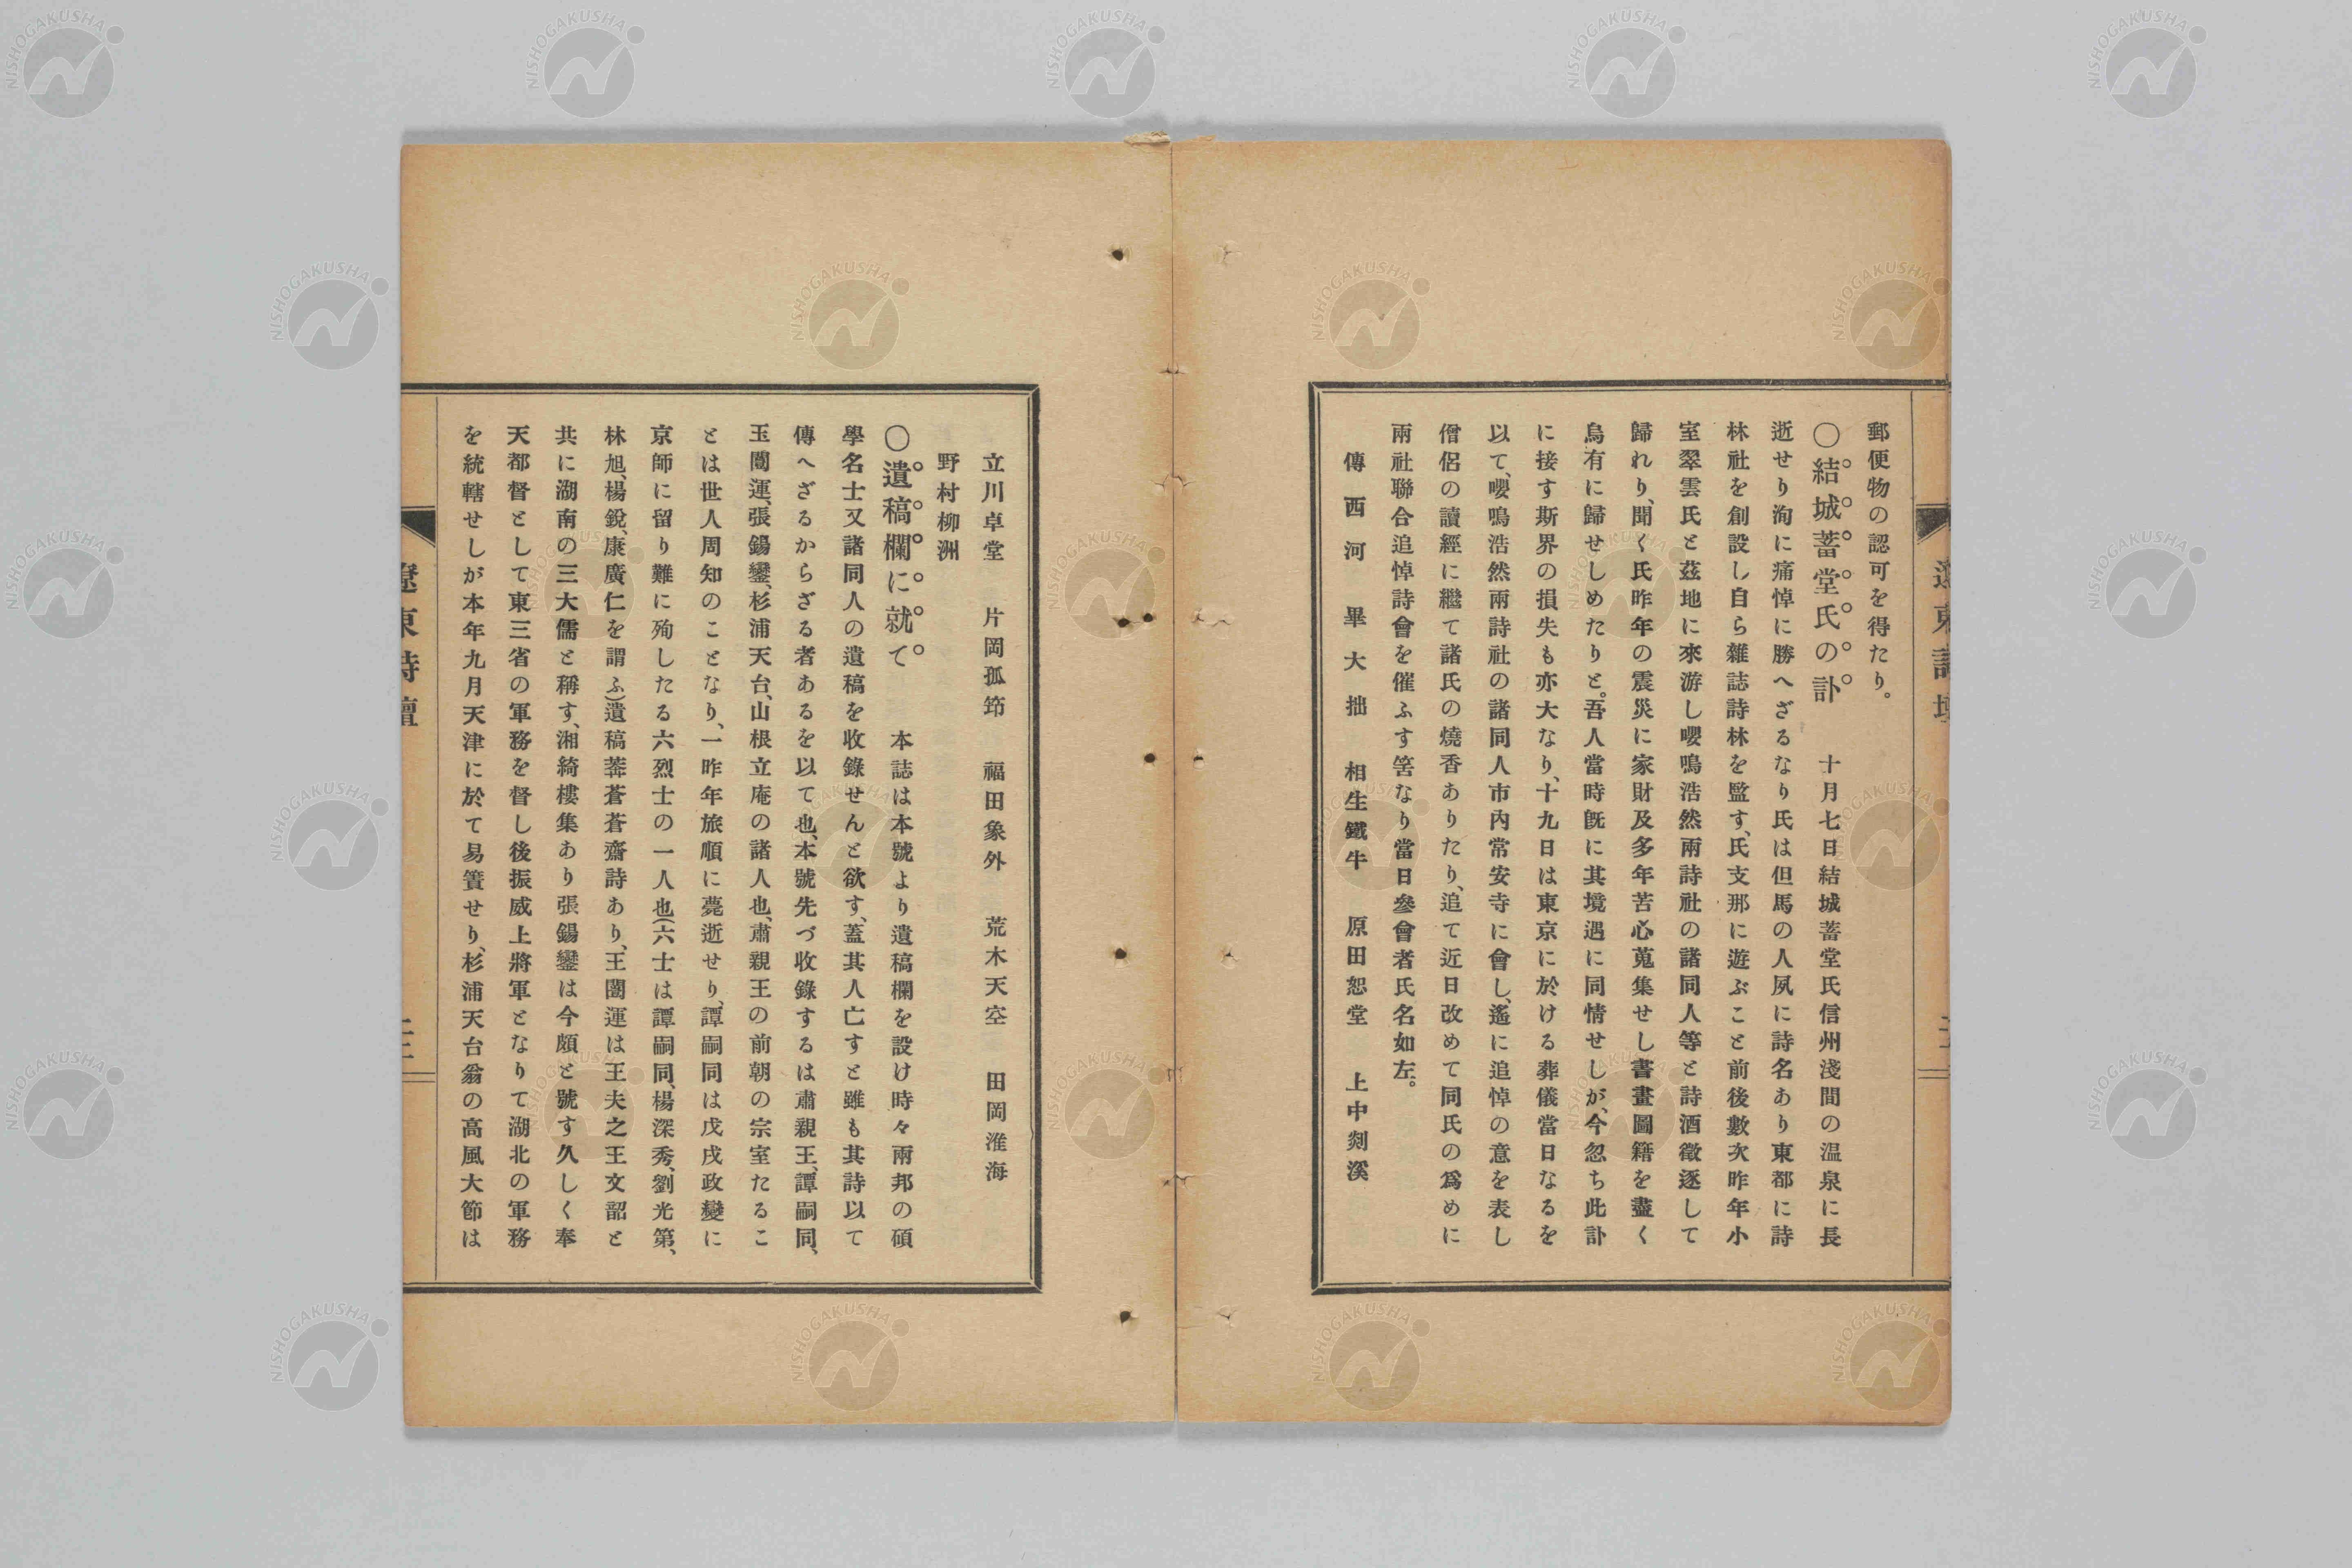 郵便物の認可を得たり。
〇結城蓄堂氏の訃　十月七日結城蓄堂氏信州淺間の温泉に長
逝せり洵に痛悼に勝へざるなり氏は但馬の人夙に詩名あり東都に詩
林社を創設し自ら雜誌詩林を監す、氏支那に遊ぶこと前後數次昨年小
室翠雲氏と玆地に來游し嚶鳴浩然兩詩社の諸同人等と詩酒徵逐して
歸れり、聞く氏昨年の震災に家財及多年苦心蒐集せし書畫圖籍を盡く
烏有に歸せしめたりと。吾人當時既に其境遇に同情せしが、今忽ち此訃
に接す斯界の損失も亦大なり、十九日は東京に於ける葬儀當日なるを
以て、嚶鳴浩然兩詩社の諸同人市內常安寺に會し、遙に追悼の意を表し
僧侶の讀經に繼て諸氏の燒香ありたり、追て近日改めて同氏の爲めに
兩社聯合追悼詩會を催ふす筈なり當日參會者氏名如左。
傳西河　畢大拙　相生鐵牛　原田恕堂　上中剡溪
遼東詩壇
立川卓堂　片岡孤筇　福田象外　荒木天空　田岡淮海
野村柳洲
〇遺稿欄に就て　本誌は本號より遺稿欄を設け時々兩邦の碩
學名士又諸同人の遺稿を收錄せんと欲す、蓋其人亡すと雖も其詩以て
傳へざるからざる者あるを以て也、本號先づ收錄するは肅親王、譚嗣同、
王闓運、張錫鑾、杉浦天台、山根立庵の諸人也、肅親王の前朝の宗室たるこ
とは世人周知のことなり、一昨年旅順に薨逝せり、譚嗣同は戊戌政變に
京師に留り難に殉したる六烈士の一人也(六士は譚嗣同、楊深秀、劉光第、
林旭、楊銳、康廣仁を謂ふ)遺稿莽蒼蒼齋詩あり、王闓運は王夫之王文韶と
共に湖南の三大儒と稱す、湘綺樓集あり張錫鑾は今頗と號す久しく奉
天都督として東三省の軍務を督し後振威上將軍となりて湖北の軍務
を統轄せしが本年九月天津に於て易簀せり、杉浦天台翁の高風大節は
遼東詩壇
NISHOGAKUSHA